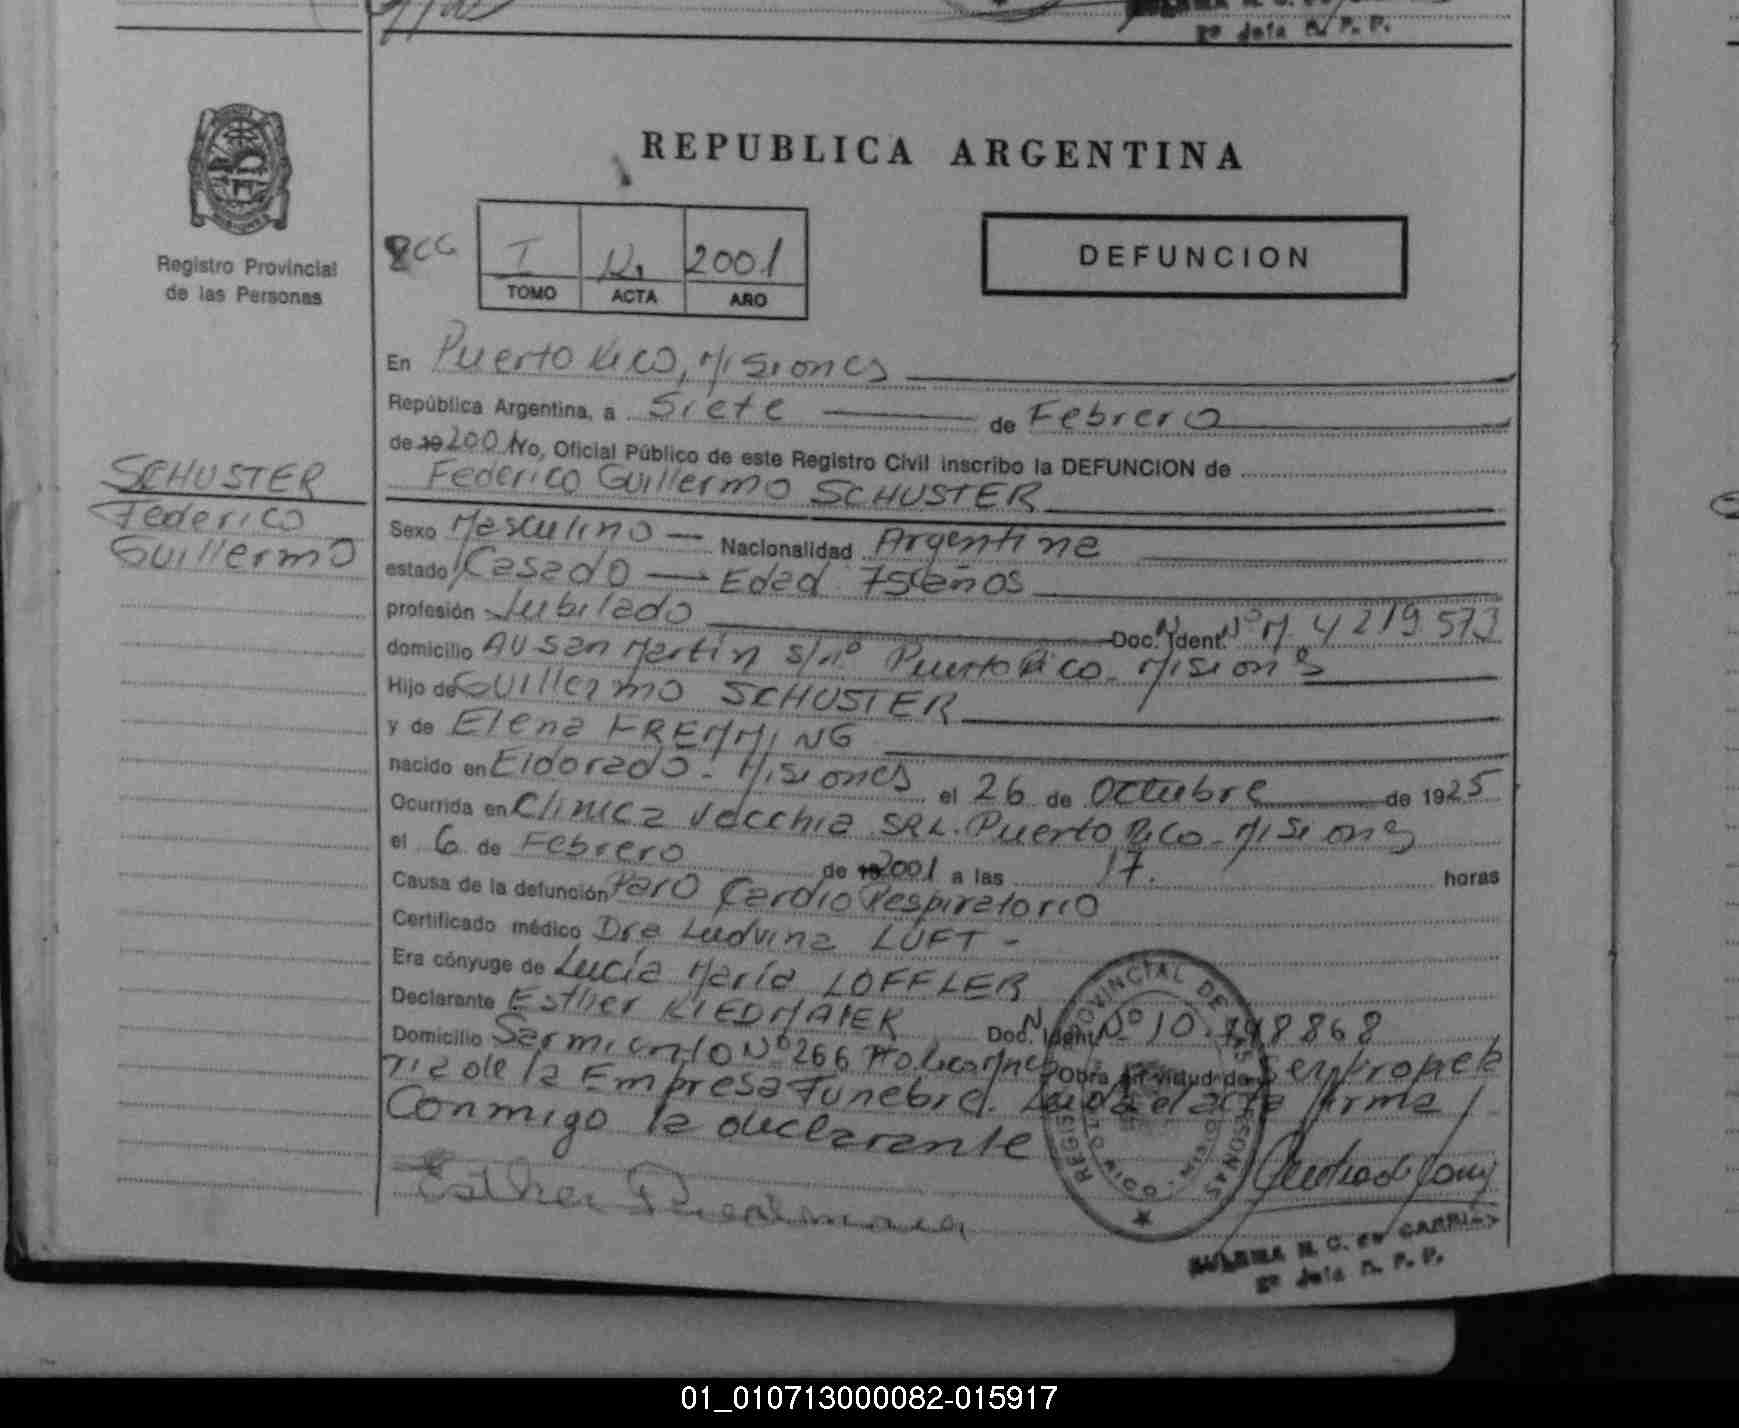 2º Jefe R. P. P.
REPUBLICA ARGENTINA
I 2001
TOMO ACTA AÑO
DEFUNCION
Registro Provincial
de las Personas
En Puerto Rico, Misiones
República Argentina, a Siete de Febrero
de 19 2001 Yo, Oficial Público de este Registro Civil inscribo la DEFUNCION de
Federico Guillermo SCHUSTER
SCHUSTER
Federico
Guillermo
Sexo Masculino Nacionalidad Argentina
estado Casado Edad 75 años
profesión Jubilado Doc. Ident. Nº M. 4219573
domicilio AV San Martín s/nº Puerto Rico - Misiones
Hijo de Guillermo SCHUSTER
y de Elena FREMMING
nacido en Eldorado - Misiones el 26 de Octubre de 1925
Ocurrida en Clinica Vecchia SRL. Puerto Rico - Misiones
el 6 de Febrero de 19 2001 a las 17. horas
Causa de la defunción Paro Cardio Respiratorio
Certificado médico Dra Ludvina LUFT -
Era cónyuge de Lucía María LOFFLER
Declarante Esther RIEDMAIER Doc. Ident. Nº 10. 868
Domicilio Sarmiento Nº 266 Obra en virtud de ser propieta
ria de la Empresa Funebre. Leída el acta firma
Conmigo la declarante
REGISTRO PROVINCIAL DE LAS PERSONAS
Esther
2º Jefe R. P. P.
01_010713000082-015917